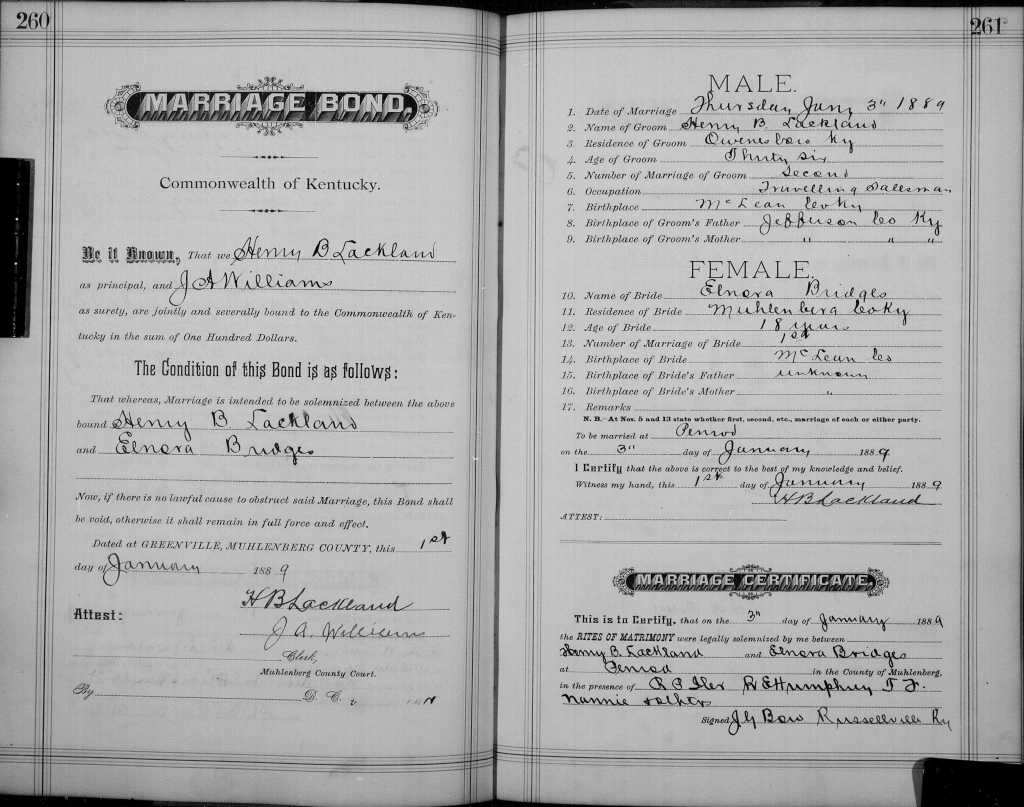 260
MARRIAGE BOND,
Commonwealth of Kentucky.
Be it Known, That we Henry B Lackland
as principal, and J A Williams
as surety, are jointly and severally bound to the Commonwealth of Ken-
tucky in the sum of One Hundred Dollars.
The Condition of this Bond is as follows:
That whereas, Marriage is intended to be solemnized between the above
bound Henry B. Lackland
and Elnora Bridges
Now, if there is no lawful cause to obstruct said Marriage, this Bond shall
be void, otherwise it shall remain in full force and effect.
Dated at GREENVILLE, MUHLENBERG COUNTY, this 1st
day of January 1889
H B Lackland
Attest:
J. A. Williams
Clerk,
Muhlenberg County Court.
By D. C.
261
MALE.
1. Date of Marriage Thursday Jany 3" 1889
2. Name of Groom Henry B. Lackland
3. Residence of Groom Owensboro Ky
4. Age of Groom Thirty six
5. Number of Marriage of Groom Second
6. Occupation Travelling Salesman
7. Birthplace McLean Co Ky
8. Birthplace of Groom's Father Jefferson Co Ky
9. Birthplace of Groom's Mother " " "
FEMALE.
10. Name of Bride Elnora Bridges
11. Residence of Bride Muhlenberg Co Ky
12. Age of Bride 18 years
13. Number of Marriage of Bride 1st
14. Birthplace of Bride McLean Co
15. Birthplace of Bride's Father unknown
16. Birthplace of Bride's Mother "
17. Remarks
N. B.—At Nos. 5 and 13 state whether first, second, etc., marriage of each or either party.
To be married at Penrod
on the 3" day of January 1889
I Certify that the above is correct to the best of my knowledge and belief.
Witness my hand, this 1st day of January 1889
H B Lackland
ATTEST:
MARRIAGE CERTIFICATE.
This is to Certify, that on the 3" day of January 1889
the RITES OF MATRIMONY were legally solemnized by me between
Henry B. Lackland and Elnora Bridges
at Penrod in the County of Muhlenberg,
in the presence of R P Iler R E Humphrey T. F.
Nannie
Signed J G Bow Russellville Ky